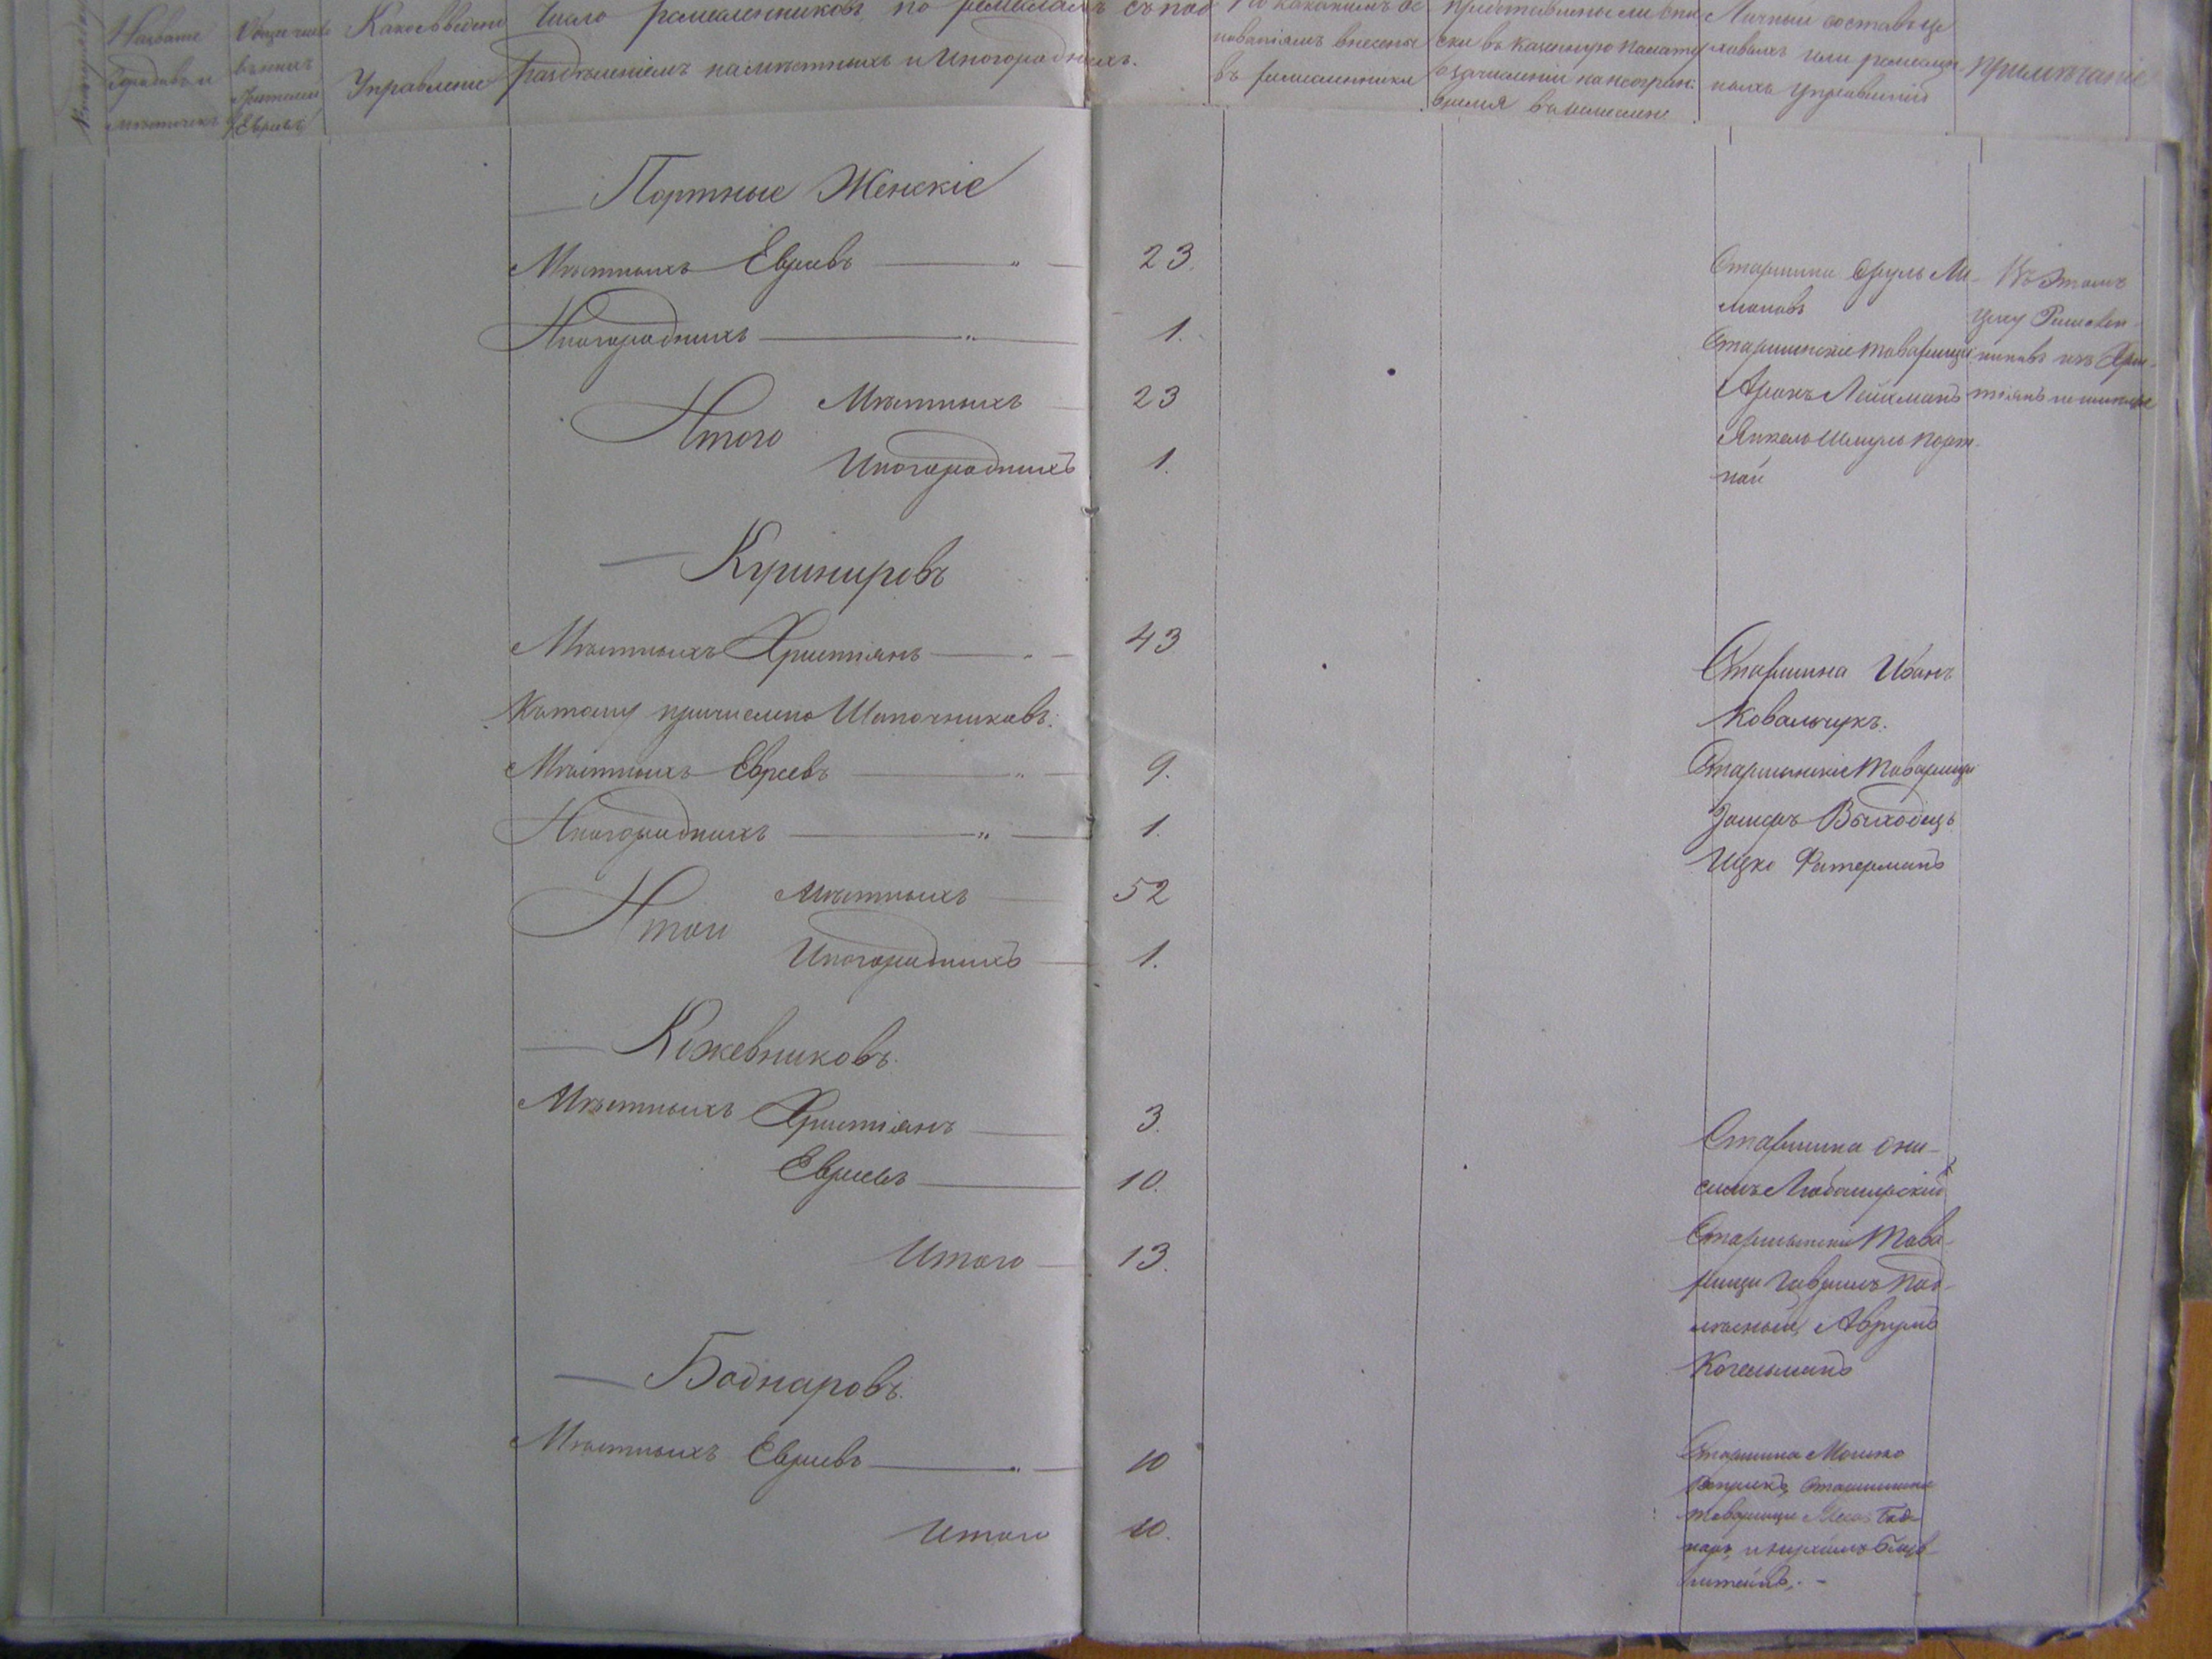 Названіе
Городовъ и
мѣстечекъ
въ нихъ
Жителей
Евреевъ
Какое введено
Управленіе
Число ремесленниковъ по ремесламъ съ под
раздѣленіемъ на мѣстныхъ и Иногородныхъ.
По какимъ ос
нованіямъ внесены
въ ремесленники
Представлены ли спи
ски въ Казенную палату
о зачисленіи
время
Личный составъ це
ховыхъ или ремеслен
ныхъ управленій
Примѣчаніе
Портные Женскіе
Мѣстныхъ Евреевъ — „ — 23.
Иногородныхъ — „ — 1.
Итого Мѣстныхъ — 23
Иногородныхъ 1.
Старшина Сруль Ли-
мановъ
Старшинскіе товарищи
Аронъ Лейхманъ
Янкель Шмуль Порт-
ной
Въ этомъ
цеху Ремеслен-
никовъ изъ Хри-
стіянъ не имѣется
Кушнировъ
Мѣстныхъ Христіянъ — „ — 43
Къ тому причислено Шапочниковъ:
Мѣстныхъ Евреевъ — „ — 9.
Иногородныхъ — „ — 1.
Итого Мѣстныхъ — 52
Иногородныхъ — 1.
Старшина Иванъ
Ковальчукъ.
Старшинскіе Товарищи
Выходецъ
Ицко Фатерманъ
Кожевниковъ.
Мѣстныхъ Христіянъ — 3.
Евреевъ — 10.
Итого — 13.
Старшина Они-
симъ Любомирскій
Старшинскіе Това-
рищи Гаврилъ Под-
лѣсный, Аврумъ
Когельманъ
Боднаровъ.
Мѣстныхъ Евреевъ — „ — 10
Итого 10.
Старшина Мошко
Старшинскіе
товарищи Бод-
наръ, и
штейнъ. –